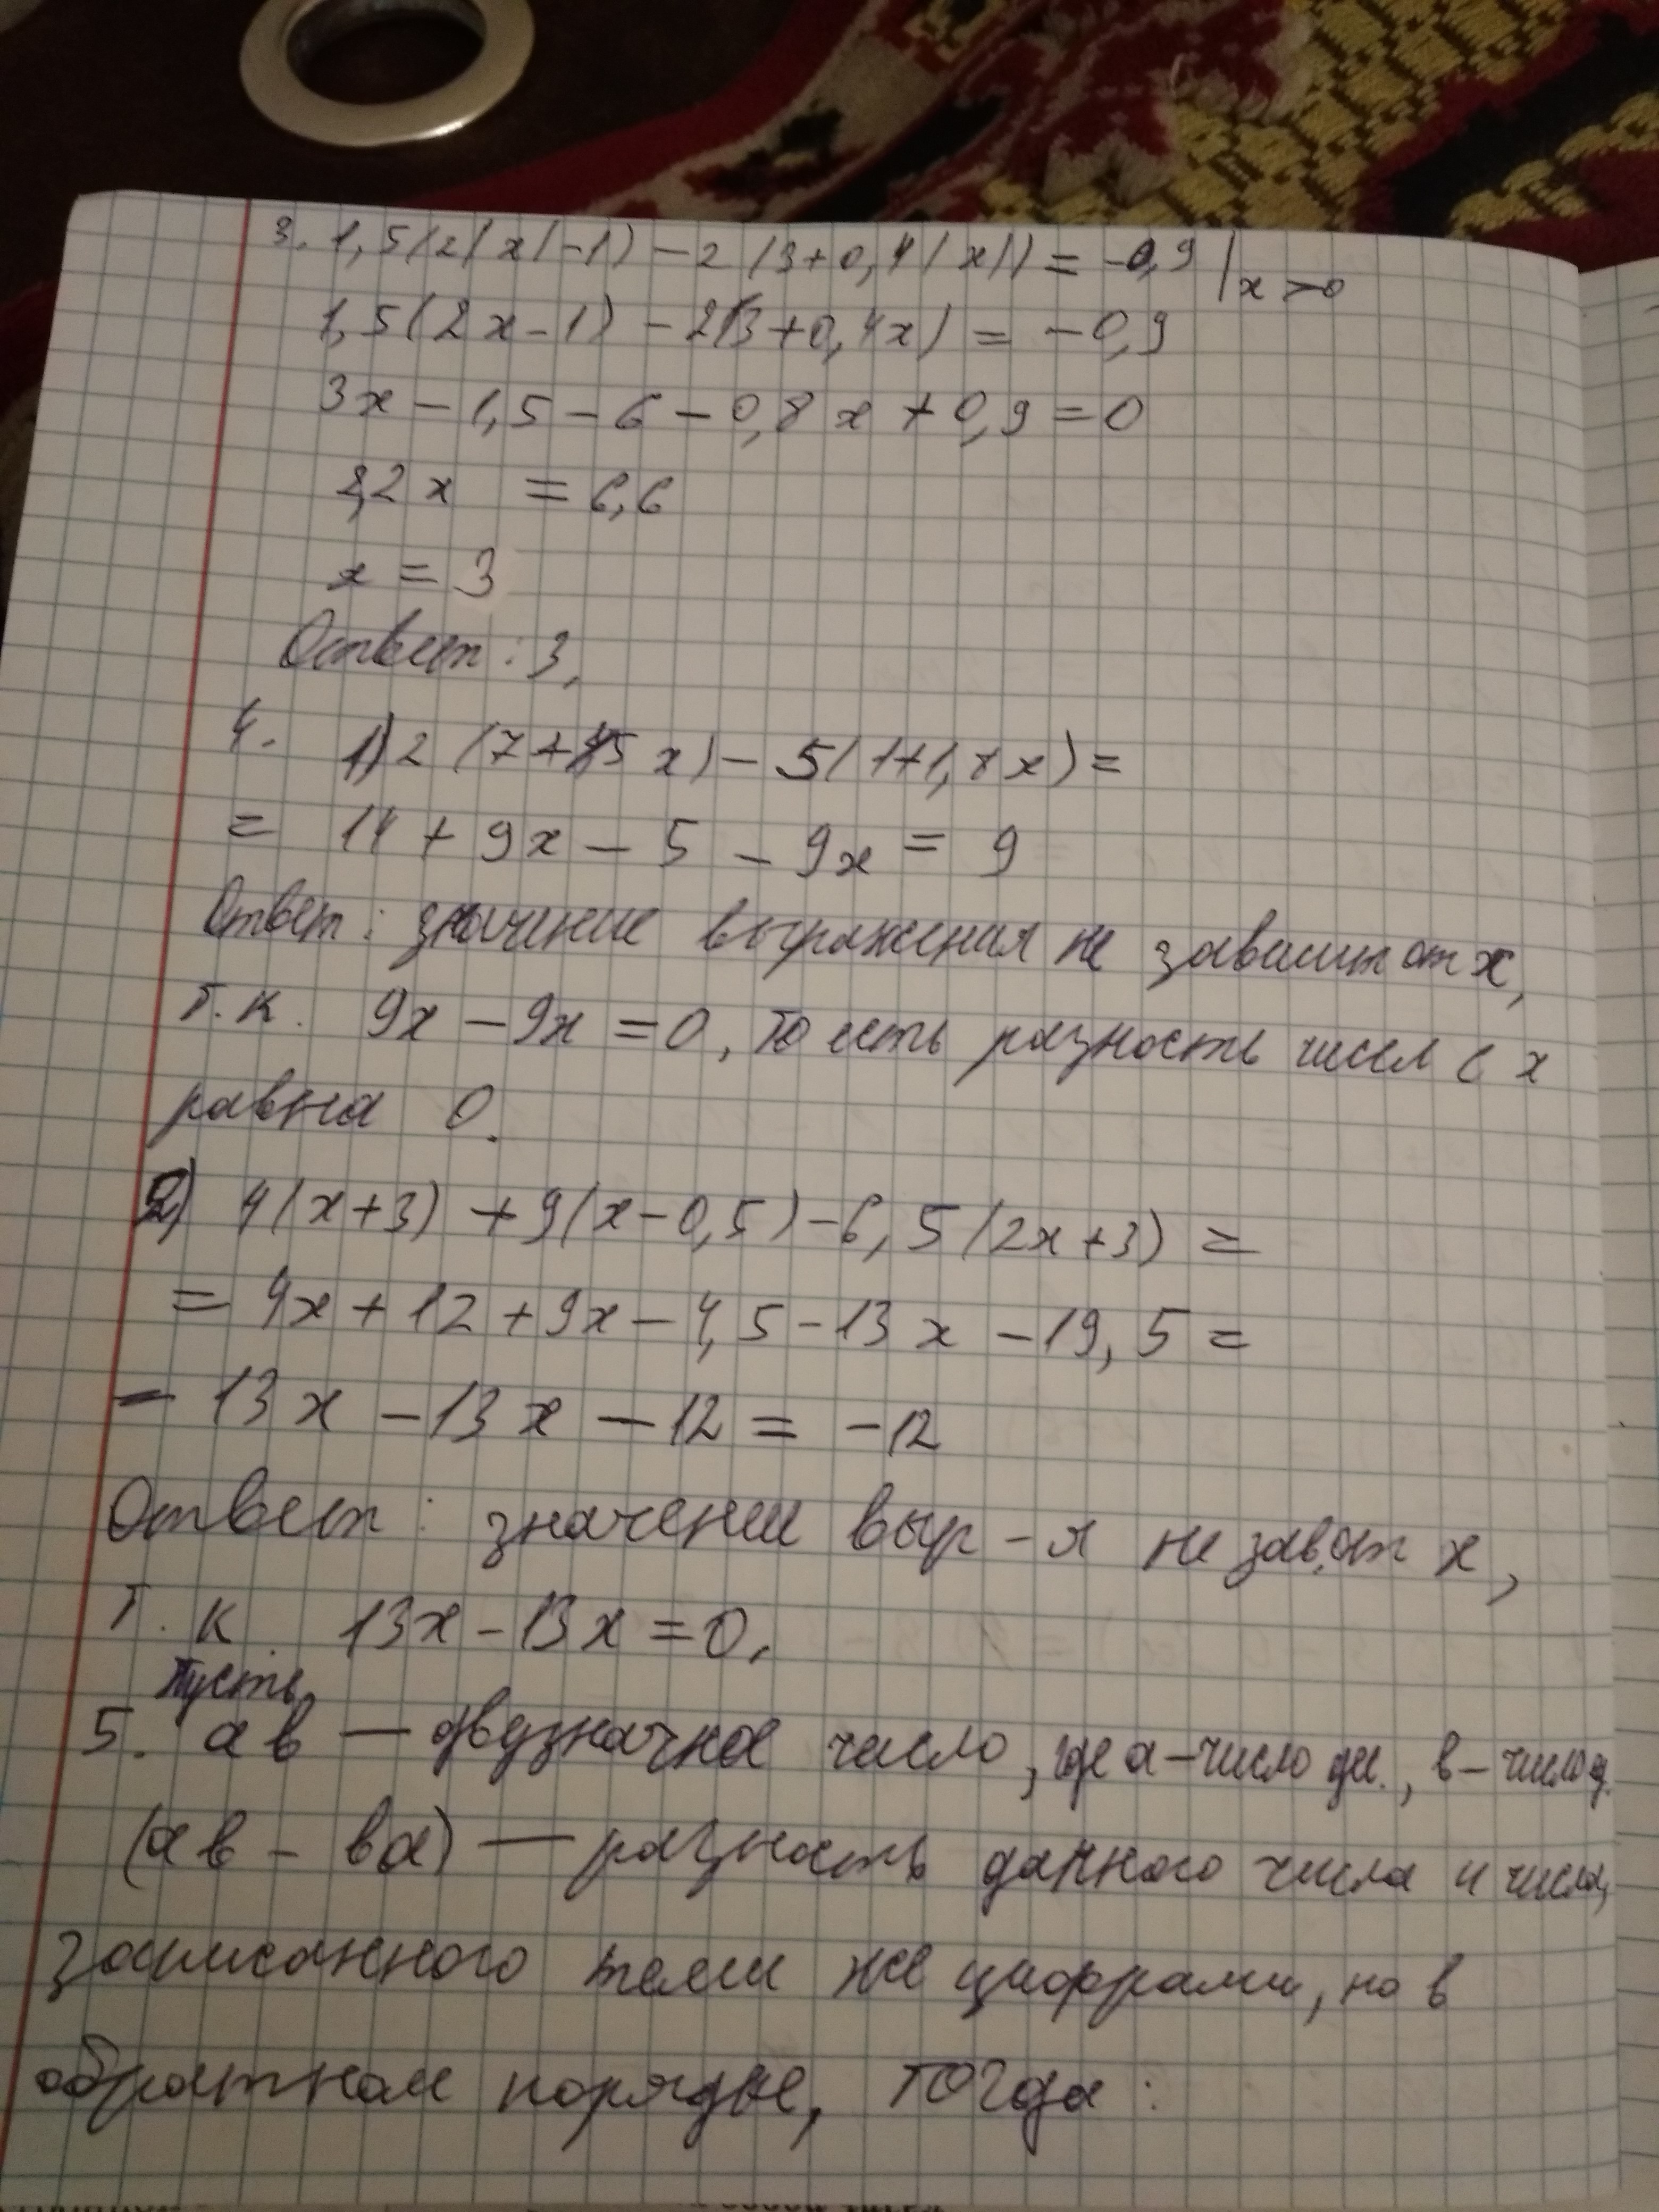 3. 1,5(2|x|-1) - 2(3+0,4|x|) = -0,9 | x > 0
1,5(2x-1) - 2(3+0,4x) = -0,9
3x - 1,5 - 6 - 0,8x + 0,9 = 0
2,2x = 6,6
x = 3
Ответ: 3.
4. 1) 2(7+4,5x) - 5(1+1,8x) =
= 14 + 9x - 5 - 9x = 9
Ответ: значение выражения не зависит от x,
т.к. 9x - 9x = 0, то есть разность чисел с x
равна 0.
2) 4(x+3) + 9(x-0,5) - 6,5(2x+3) =
= 4x + 12 + 9x - 4,5 - 13x - 19,5 =
= 13x - 13x - 12 = -12
Ответ: значение выр-я не зав. от x,
т.к. 13x - 13x = 0.
Пусть
5. ав — двузначное число, где а - число дес., в - число
(ав - ва) — разность данного числа и числа,
записанного теми же цифрами, но в
обратном порядке, тогда: